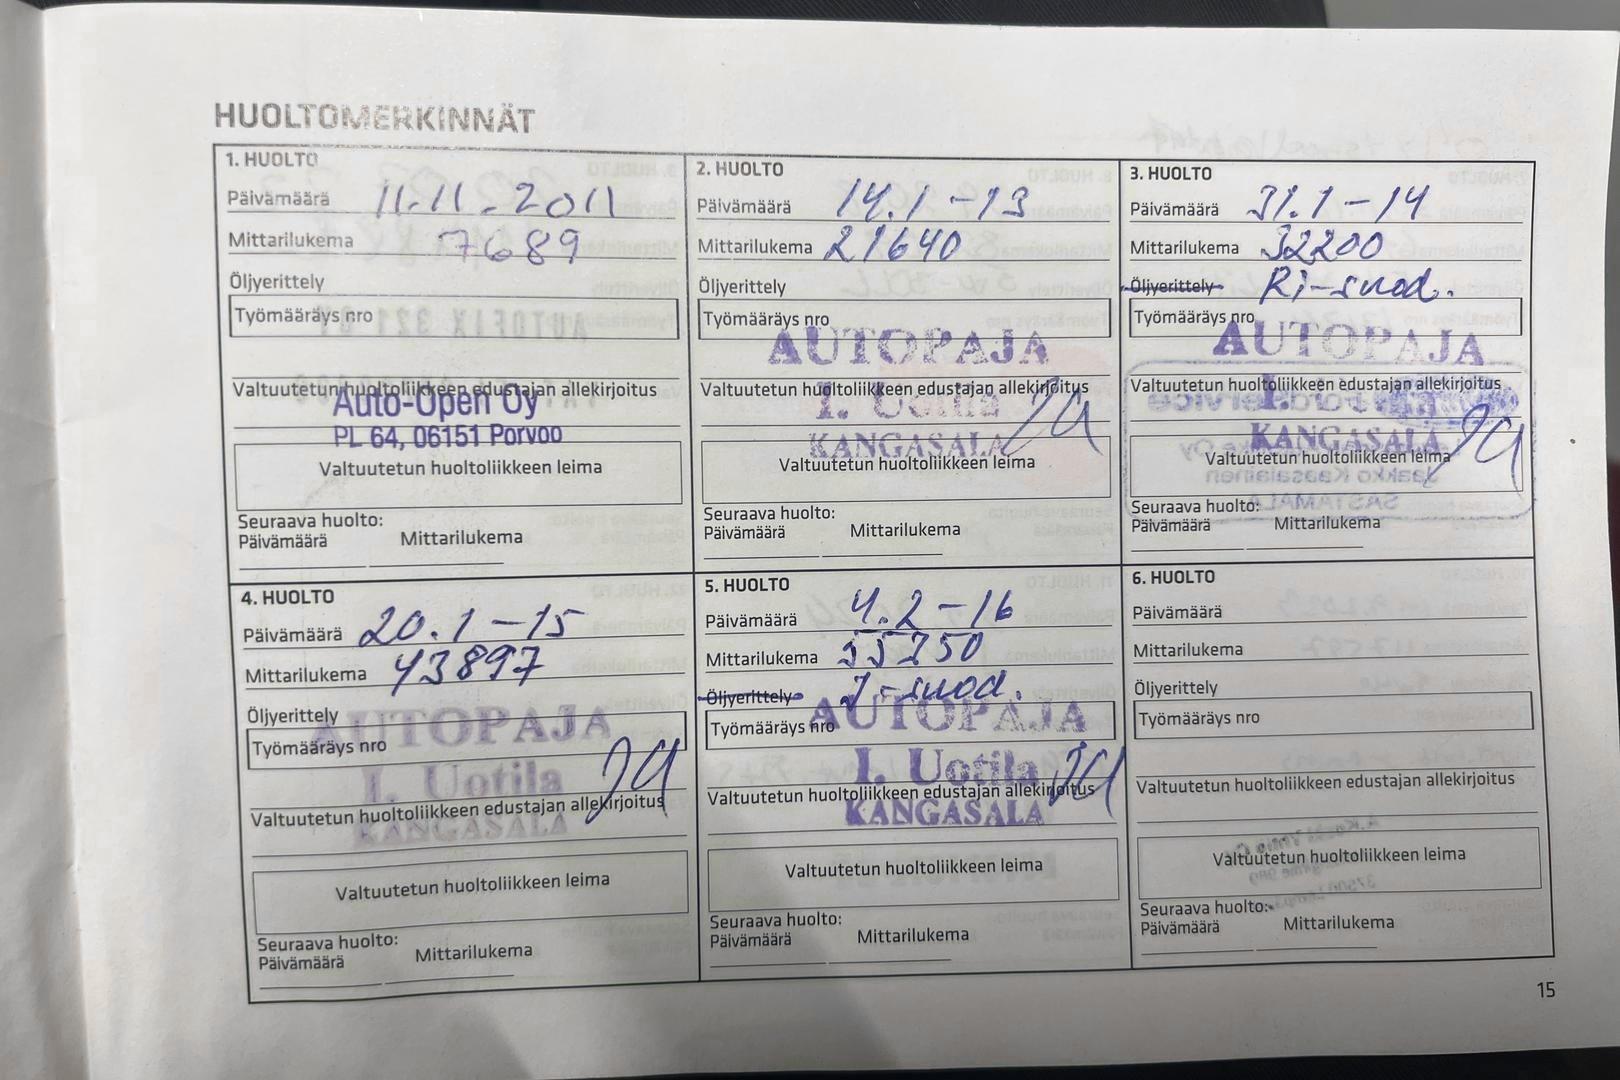 HUOLTOMERKINNÄT
1. HUOLTO
Päivämäärä 11.11.2011
Mittarilukema 7689
Öljyerittely
Työmääräys nro
Valtuutetun huoltoliikkeen edustajan allekirjoitus
Auto-Open Oy
PL 64, 06151 Porvoo
Valtuutetun huoltoliikkeen leima
Seuraava huolto:
Päivämäärä Mittarilukema
2. HUOLTO
Päivämäärä 14.1-13
Mittarilukema 21640
Öljyerittely
Työmääräys nro
AUTOPAJA
Valtuutetun huoltoliikkeen edustajan allekirjoitus
I. Uotila
KANGASALA
Valtuutetun huoltoliikkeen leima
Seuraava huolto:
Päivämäärä Mittarilukema
3. HUOLTO
Päivämäärä 31.1-14
Mittarilukema 32200
Öljyerittely Ri-suod.
Työmääräys nro
AUTOPAJA
Valtuutetun huoltoliikkeen edustajan allekirjoitus
I.
KANGASALA
Valtuutetun huoltoliikkeen leima
Seuraava huolto:
Päivämäärä Mittarilukema
4. HUOLTO
Päivämäärä 20.1-15
Mittarilukema 43897
Öljyerittely
AUTOPAJA
Työmääräys nro
I. Uotila
Valtuutetun huoltoliikkeen edustajan allekirjoitus
KANGASALA
Valtuutetun huoltoliikkeen leima
Seuraava huolto:
Päivämäärä Mittarilukema
5. HUOLTO
Päivämäärä 4.2-16
Mittarilukema
Öljyerittely -suod.
AUTOPAJA
Työmääräys nro
I. Uotila
Valtuutetun huoltoliikkeen edustajan allekirjoitus
KANGASALA
Valtuutetun huoltoliikkeen leima
Seuraava huolto:
Päivämäärä Mittarilukema
6. HUOLTO
Päivämäärä
Mittarilukema
Öljyerittely
Työmääräys nro
Valtuutetun huoltoliikkeen edustajan allekirjoitus
Valtuutetun huoltoliikkeen leima
Seuraava huolto:
Päivämäärä Mittarilukema
15